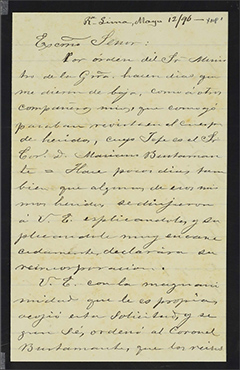 Lima, Mayo 12/96
Escmo Señor:
Por orden del Sr Minis
tro de la Gra hacen dias que
me dieron de baja, como á otros
compañeros mios, que conmigo
pasaban revista en el cuerpo
de heridos, cuyo Jefe es el Sr
Corl D. Mariano Bustaman
te = Hace pocos dias tam
bien que algunos de esos mis
mos heridos se dirijieron
á V. E. esplicandole, y su
plicandole muy encare
cidamente declarára su
reincorporacion.
V. E. con la magnani
midad que le es propia,
acojió esta solicitud, y se
gun sé, ordenó al Coronel
Bustamante, que los